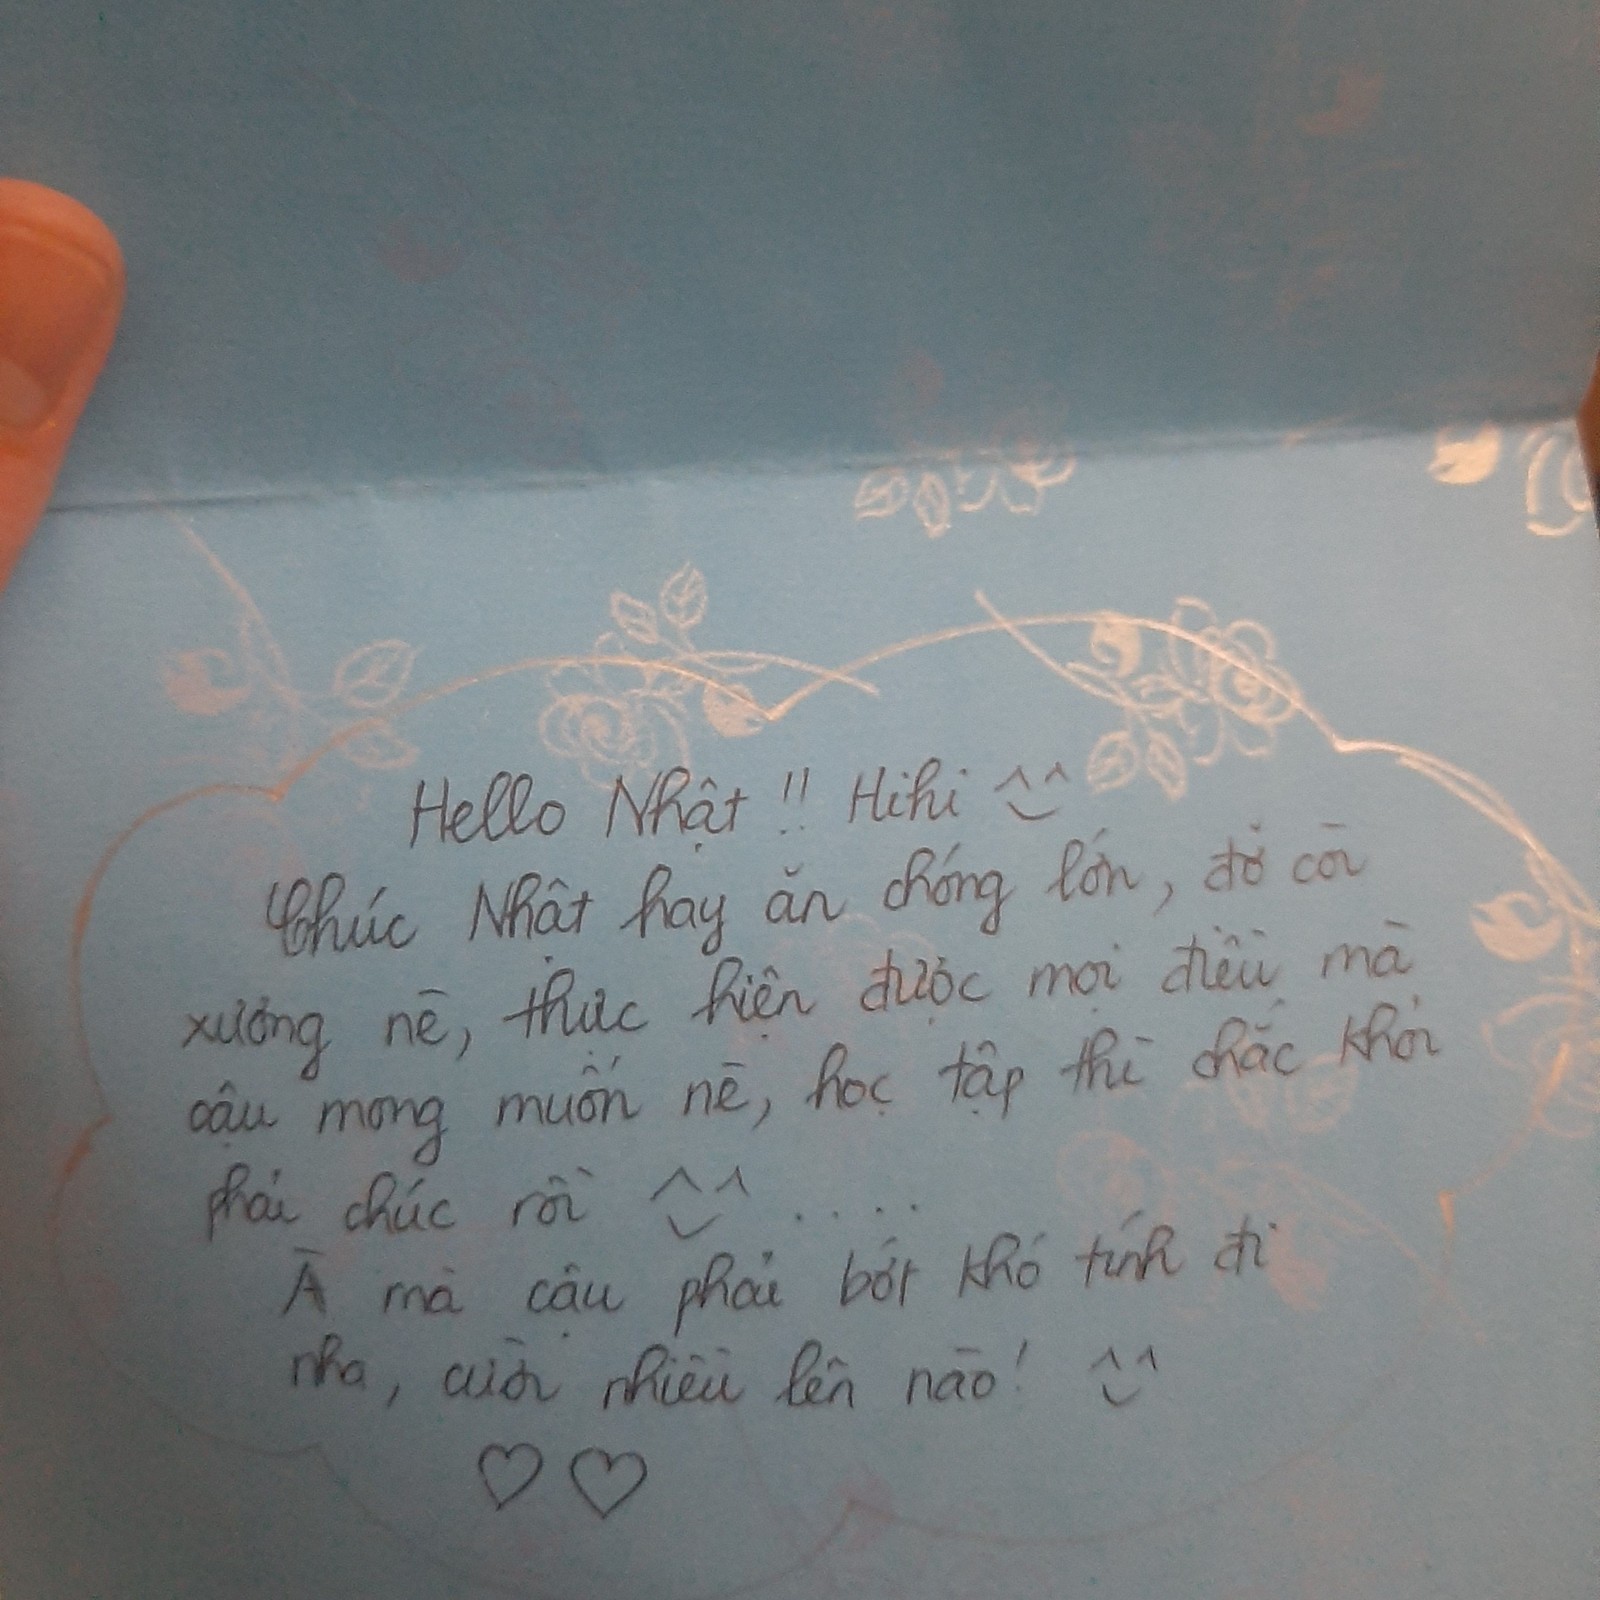 Hello Nhật !! Hihi ^^
Chúc Nhật hay ăn chóng lớn, đỡ còi
xương nè, thực hiện được mọi điều mà
cậu mong muốn nè, học tập thì chắc khỏi
phải chúc rồi ^^ ....
À mà cậu phải bớt khó tính đi
nha, cười nhiều lên nào! ^^
♡ ♡